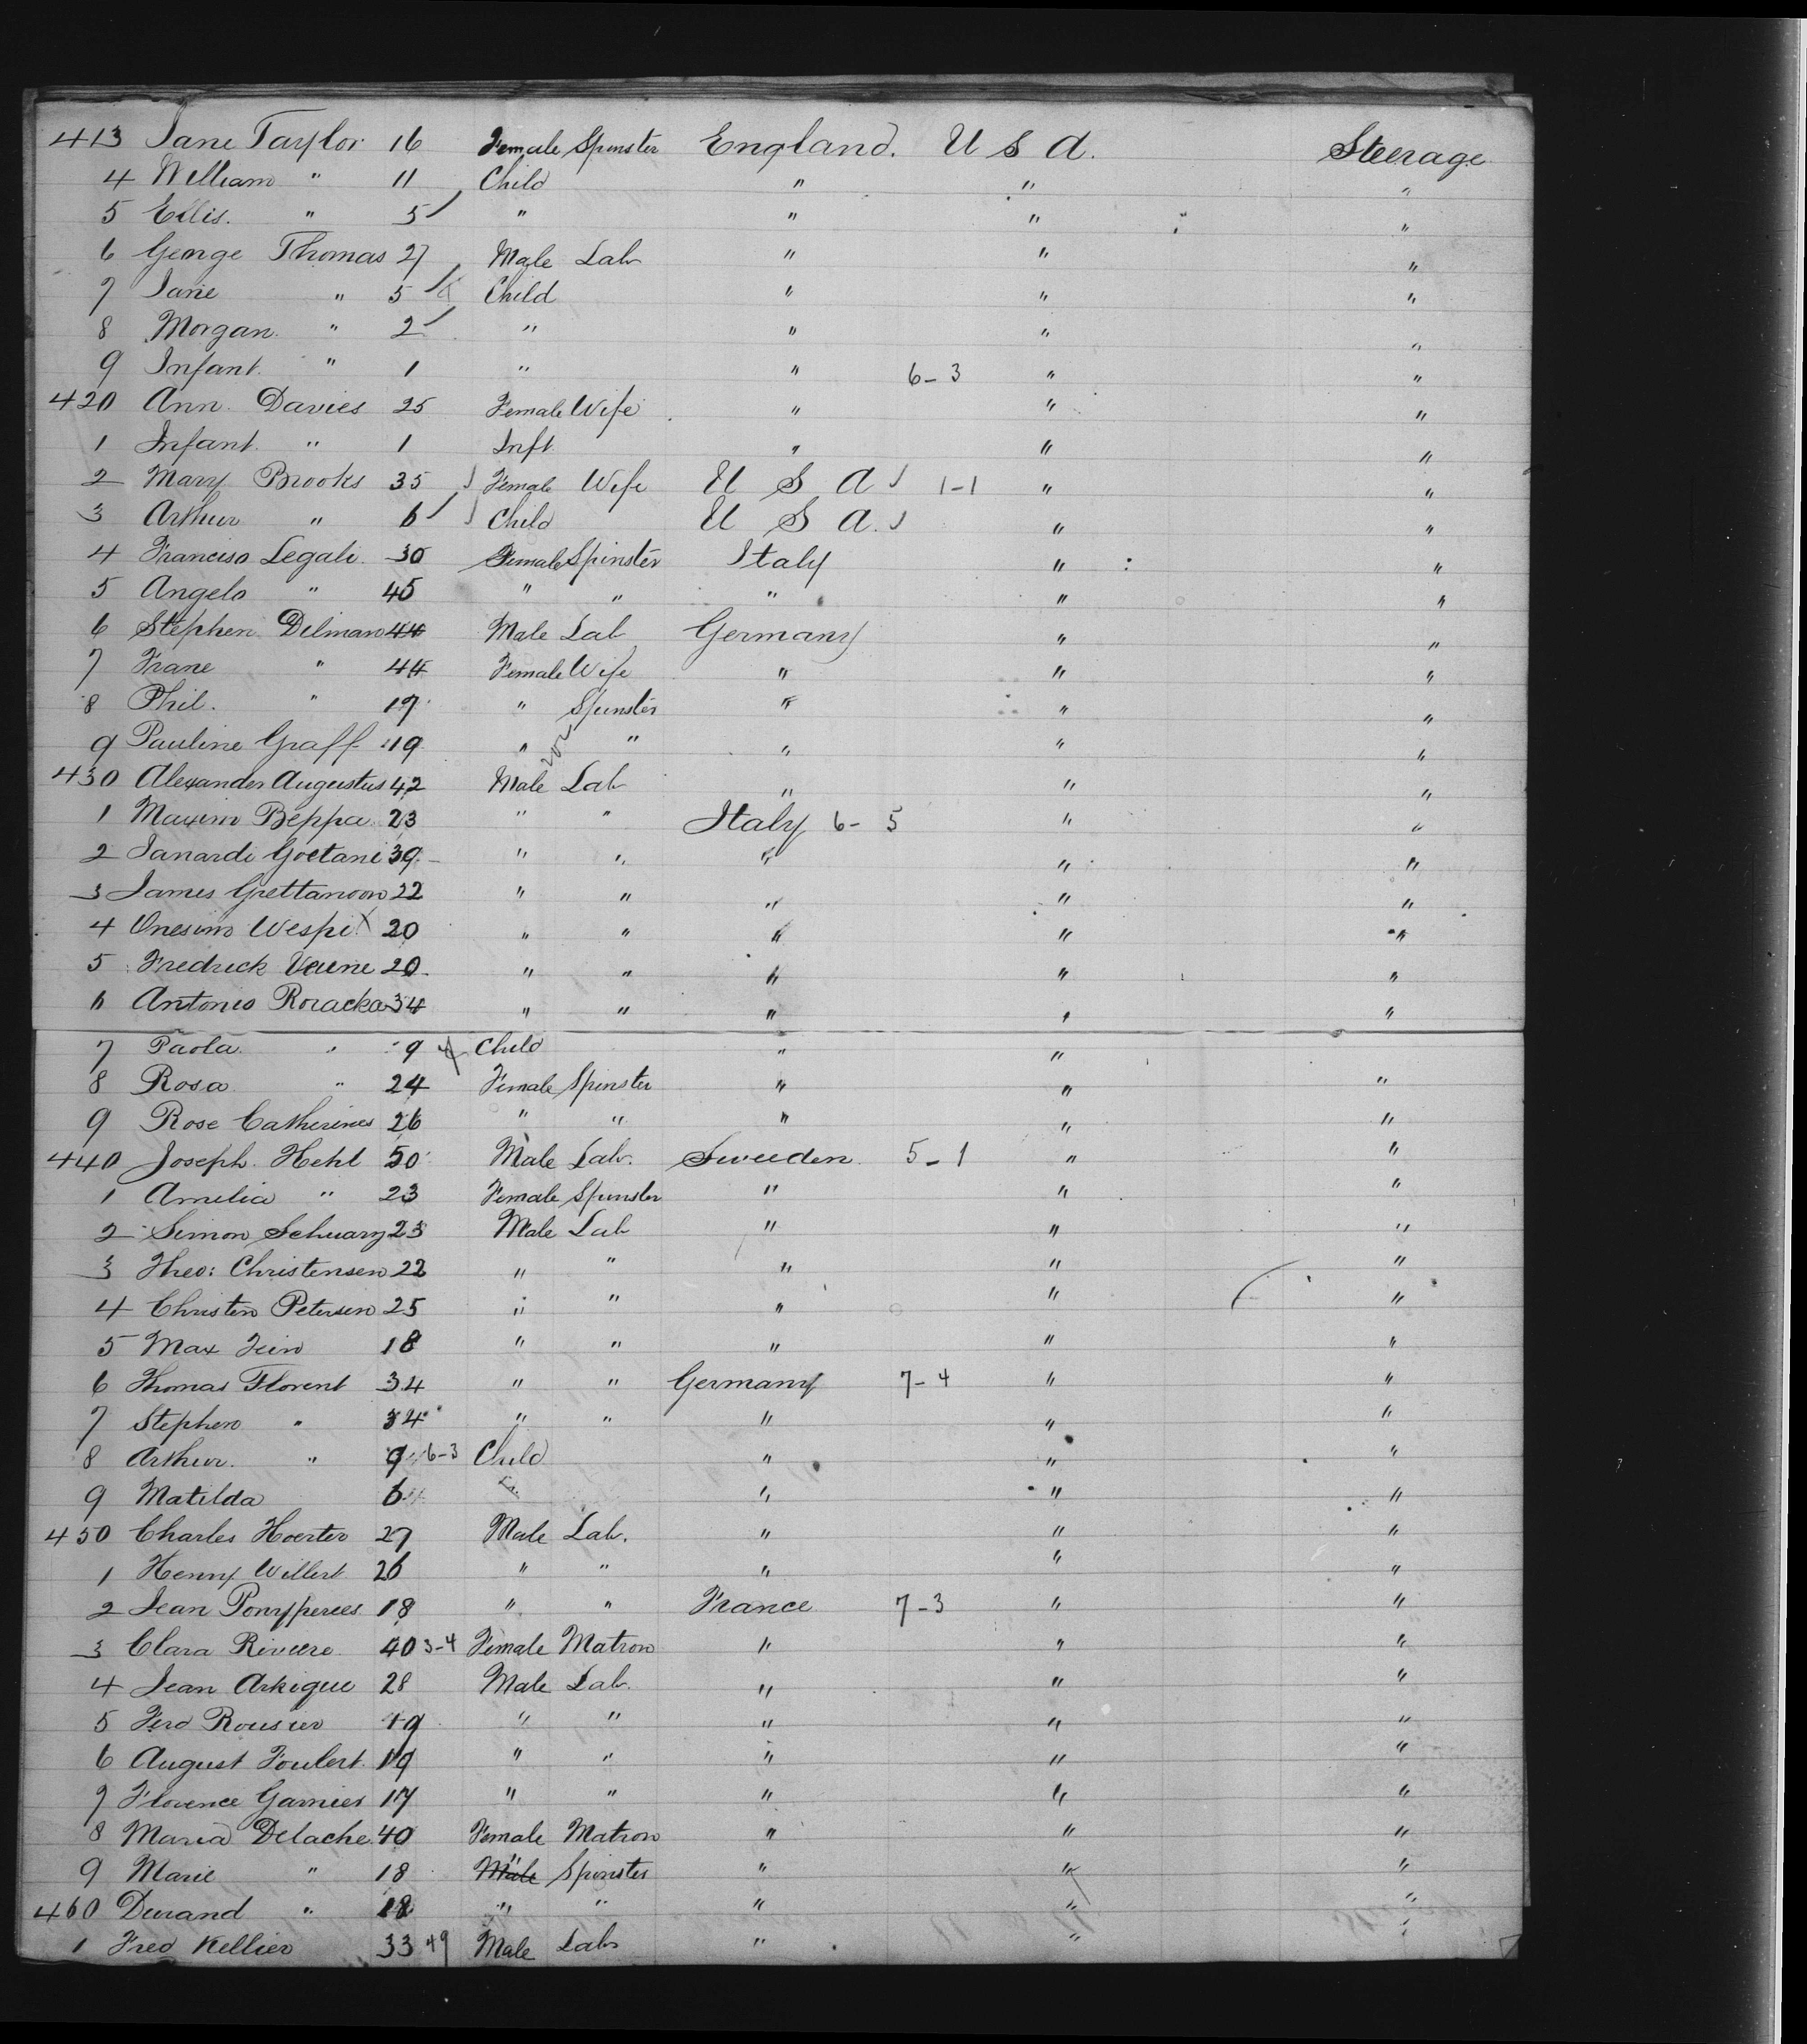 413 Jane Taylor 16 Female Spinster England. U S A. Steerage
4 William " 11 Child " " "
5 Ellis. " 5 " " " "
6 George Thomas 27 Male Lab " " "
7 Jane " 5 Child " " "
8 Morgan. " 2 " " " "
9 Infant. " 1 " " 6-3 " "
420 Ann. Davies 25 Female Wife " " "
1 Infant. " 1 Inft " " "
2 Mary Brooks 35 Female Wife U S A 1-1 " "
3 Arthur " 6 Child U S A. " "
4 Franciso Legali 30 Female Spinster Italy " "
5 Angelo " 45 " " " " "
6 Stephen Dilman 44 Male Lab Germany " "
7 Frane " 44 Female Wife " " "
8 Phil. " 19 " Spinster " " "
9 Pauline Graff 19 " " " " "
430 Alexander Augustus 42 Male Lab " " "
1 Maxim Beppa 23 " " Italy 6-5 " "
2 Janardi Goetani 39 " " " " "
3 James Grettanoon 22 " " " " "
4 Onesimo Wespi X 20 " " " " "
5 Fredrick 20 " " " " "
6 Antonio Roracka 34 " " " " "
7 Paola " 9 Child " " "
8 Rosa " 24 Female Spinster " " "
9 Rose Catherines 26 " " " " "
440 Joseph. Hehl 50 Male Lab. Sweeden 5-1 " "
1 Amelia " 23 Female Spinster " " "
2 Simon Schuarz 23 Male Lab " " "
3 Theo: Christensen 22 " " " " "
4 Christen Petersen 25 " " " " "
5 Max 18 " " " " "
6 Thomas Florent 34 " " Germany 7-4 " "
7 Stephen " 34 " " " " "
8 Arthur. " 9 6-3 Child " " "
9 Matilda 6 " " "
450 Charles Hoerter 27 Male Lab. " " "
1 Henry Willert 26 " " " " "
2 Jean Ponyperees 18 " " France 7-3 " "
3 Clara Riviere 40 3-4 Female Matron " " "
4 Jean Arkique 28 Male Lab. " " "
5 Ferd Rousier 19 " " " " "
6 August Foulert 19 " " " " "
7 Florence Garnier 17 " " " " "
8 Maria Delache 40 Female Matron " " "
9 Marie " 18 Male " Spinster " " "
460 Durand " 18 " " " " "
1 Fred Kellier 33 49 Male Lab " "